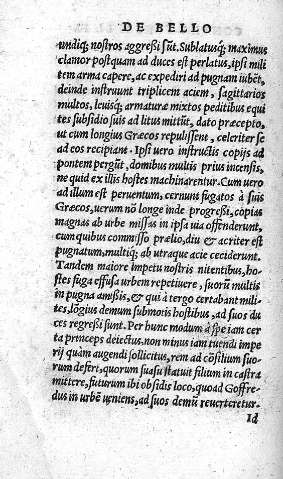 DE BELLO
undiq; nostros aggreßi sūt. Sublatusq; maximus
clamor postquam ad duces est perlatus, ipsi mili
tem arma capere, ac expediri ad pugnam iubēt,
deinde instruunt triplicem aciem, sagittarios
multos, leuisq; armaturæ mixtos peditibus equi
tes subsidio suis ad litus mittūt, dato præcepto,
ut cum longius Græcos repulissent, celeriter se
ad eos recipiant. Ipsi uero instructis copijs ad
pontem pergūt, domibus multis prius incensis,
ne quid ex illis hostes machinarentur. Cum uero
ad illum est peruentum, cernunt fugatos à suis
Græcos, uerum nō longe inde progreßi, copias
magnas ab urbe missas in ipsa uia offenderunt,
cum quibus commisso prælio, diu & acriter est
pugnatum, multiq; ab utraque acie ceciderunt.
Tandem maiore impetu nostris nitentibus, ho-
stes fuga effusa urbem repetiuere, suorū multis
in pugna amißis, & qui à tergo certabant mili-
tes, lōgius demum submotis hostibus, ad suos du
ces regreßi sunt. Per hunc modum à spe iam cer
ta princeps deiectus, non minus iam tuendi impe
rij quàm augendi sollicitus, rem ad cōsilium suo-
rum defert, quorum suasu statuit filium in castra
mittere, futurum ibi obsidis loco, quoad Goffre-
dus in urbē ueniens, ad suos demū reuerteretur.
Id